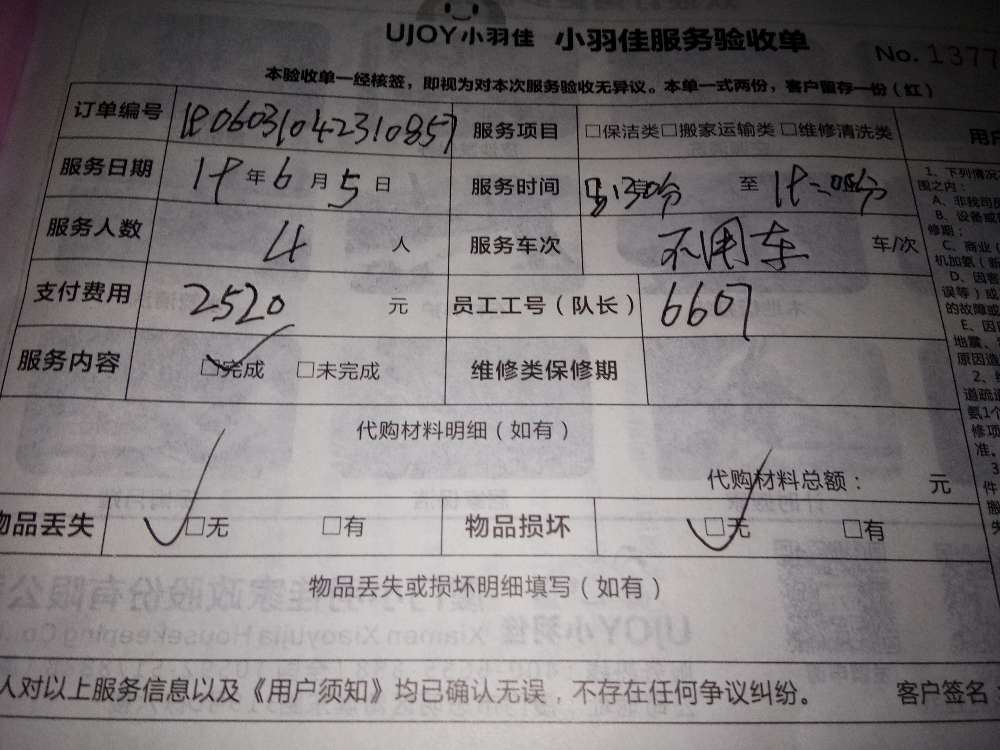 UJOY小羽佳 小羽佳服务验收单
No. 1377
本验收单一经核签，即视为对本次服务验收无异议。本单一式两份，客户留存一份（红）
订单编号 服务项目 □保洁类□搬家运输类□维修清洗类
服务日期 年6月5日 服务时间 至
服务人数 4 人 服务车次 不用车 车/次
支付费用 2520 元 员工工号（队长） 6607
服务内容 □完成 □未完成 维修类保修期
代购材料明细（如有）
代购材料总额： 元
物品丢失 □无 □有 物品损坏 □无 □有
物品丢失或损坏明细填写（如有）
人对以上服务信息以及《用户须知》均已确认无误，不存在任何争议纠纷。 客户签名
用户
1、下列情况
围之内：
A、非我司
B、设备或
修期；
C、商业
机加氨（新
D、因客
误等）或
的故障或
E、因
地震、
原因造
道疏通
氨1个
修项
准。
件